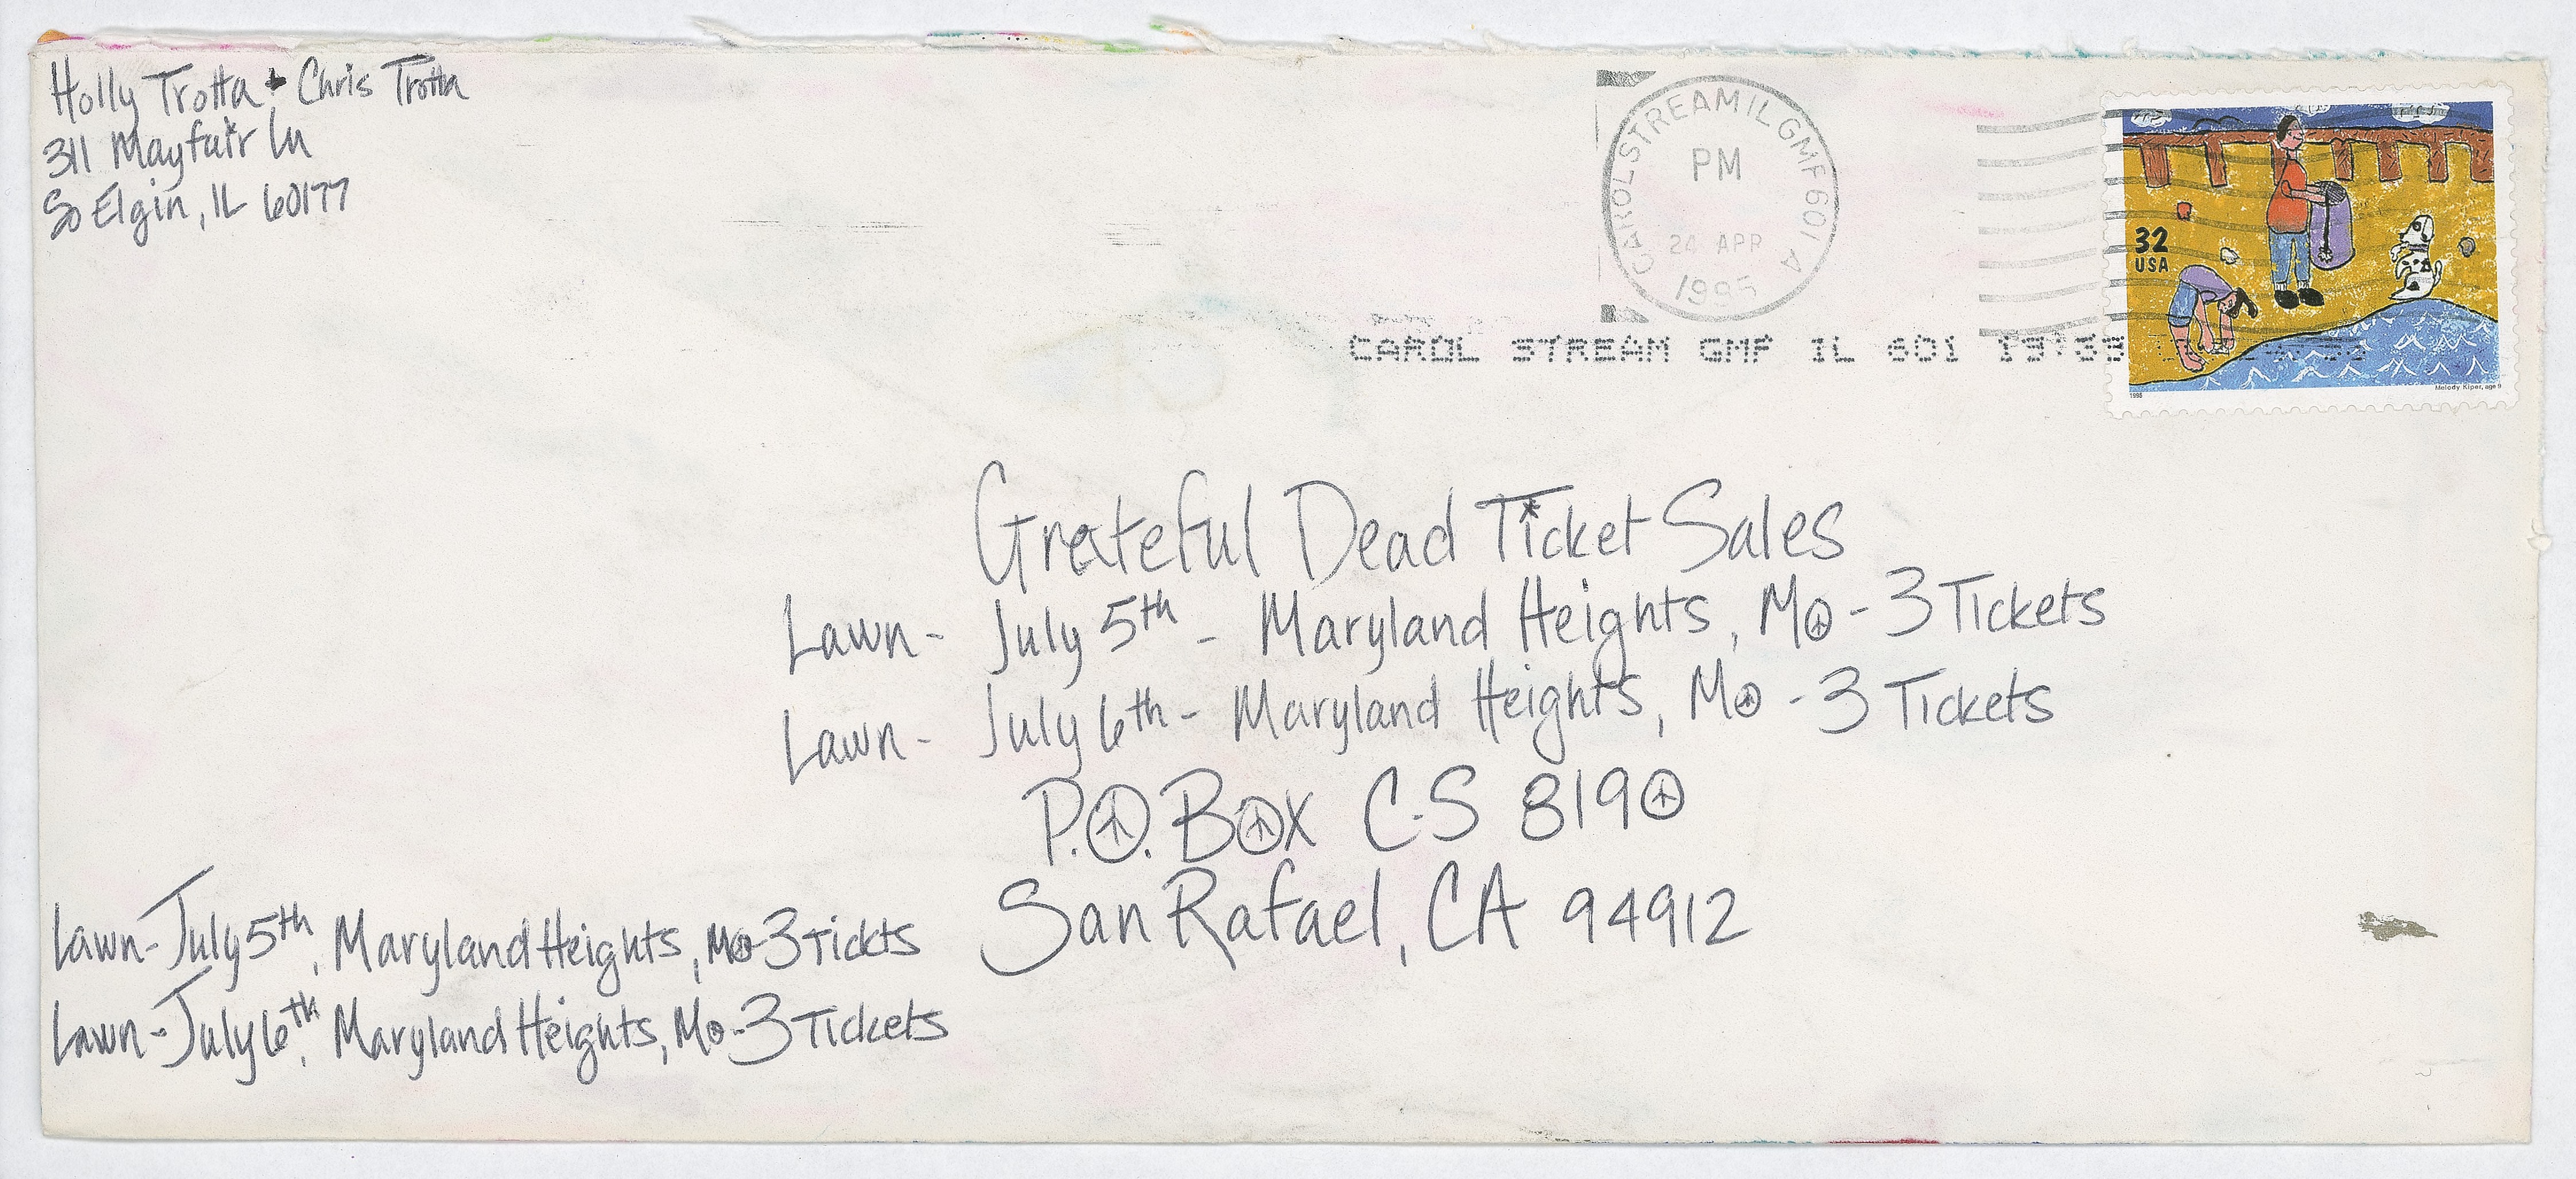 Holly Trotta & Chris Trotta
311 Mayfair Ln
So Elgin, IL 60177
CAROL STREAM IL GMF 601 A
PM
24 APR
1995
CAROL STREAM GMF IL 601 19:39
32
USA
1995
Melody Kiper, age 8
Grateful Dead Ticket Sales
Lawn- July 5th - Maryland Heights, Mo - 3 Tickets
Lawn- July 6th - Maryland Heights, Mo - 3 Tickets
P.O. Box C-S 8190
San Rafael, CA 94912
Lawn-July 5th, Maryland Heights, Mo-3 Tickts
Lawn-July 6th, Maryland Heights, Mo-3 Tickets